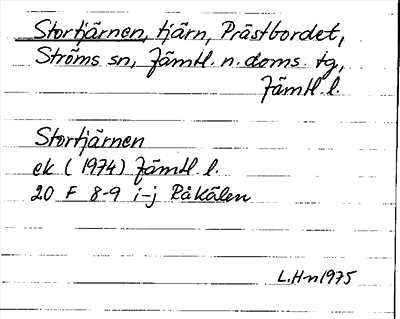 Stortjärnen, tjärn, Prästbordet,
Ströms sn, Jämtl. n. doms. tg,
Jämtl. l.
Stortjärnen
ek (1974) Jämtl. l.
20 F 8-9 i-j Råkälen
L.H-n 1975